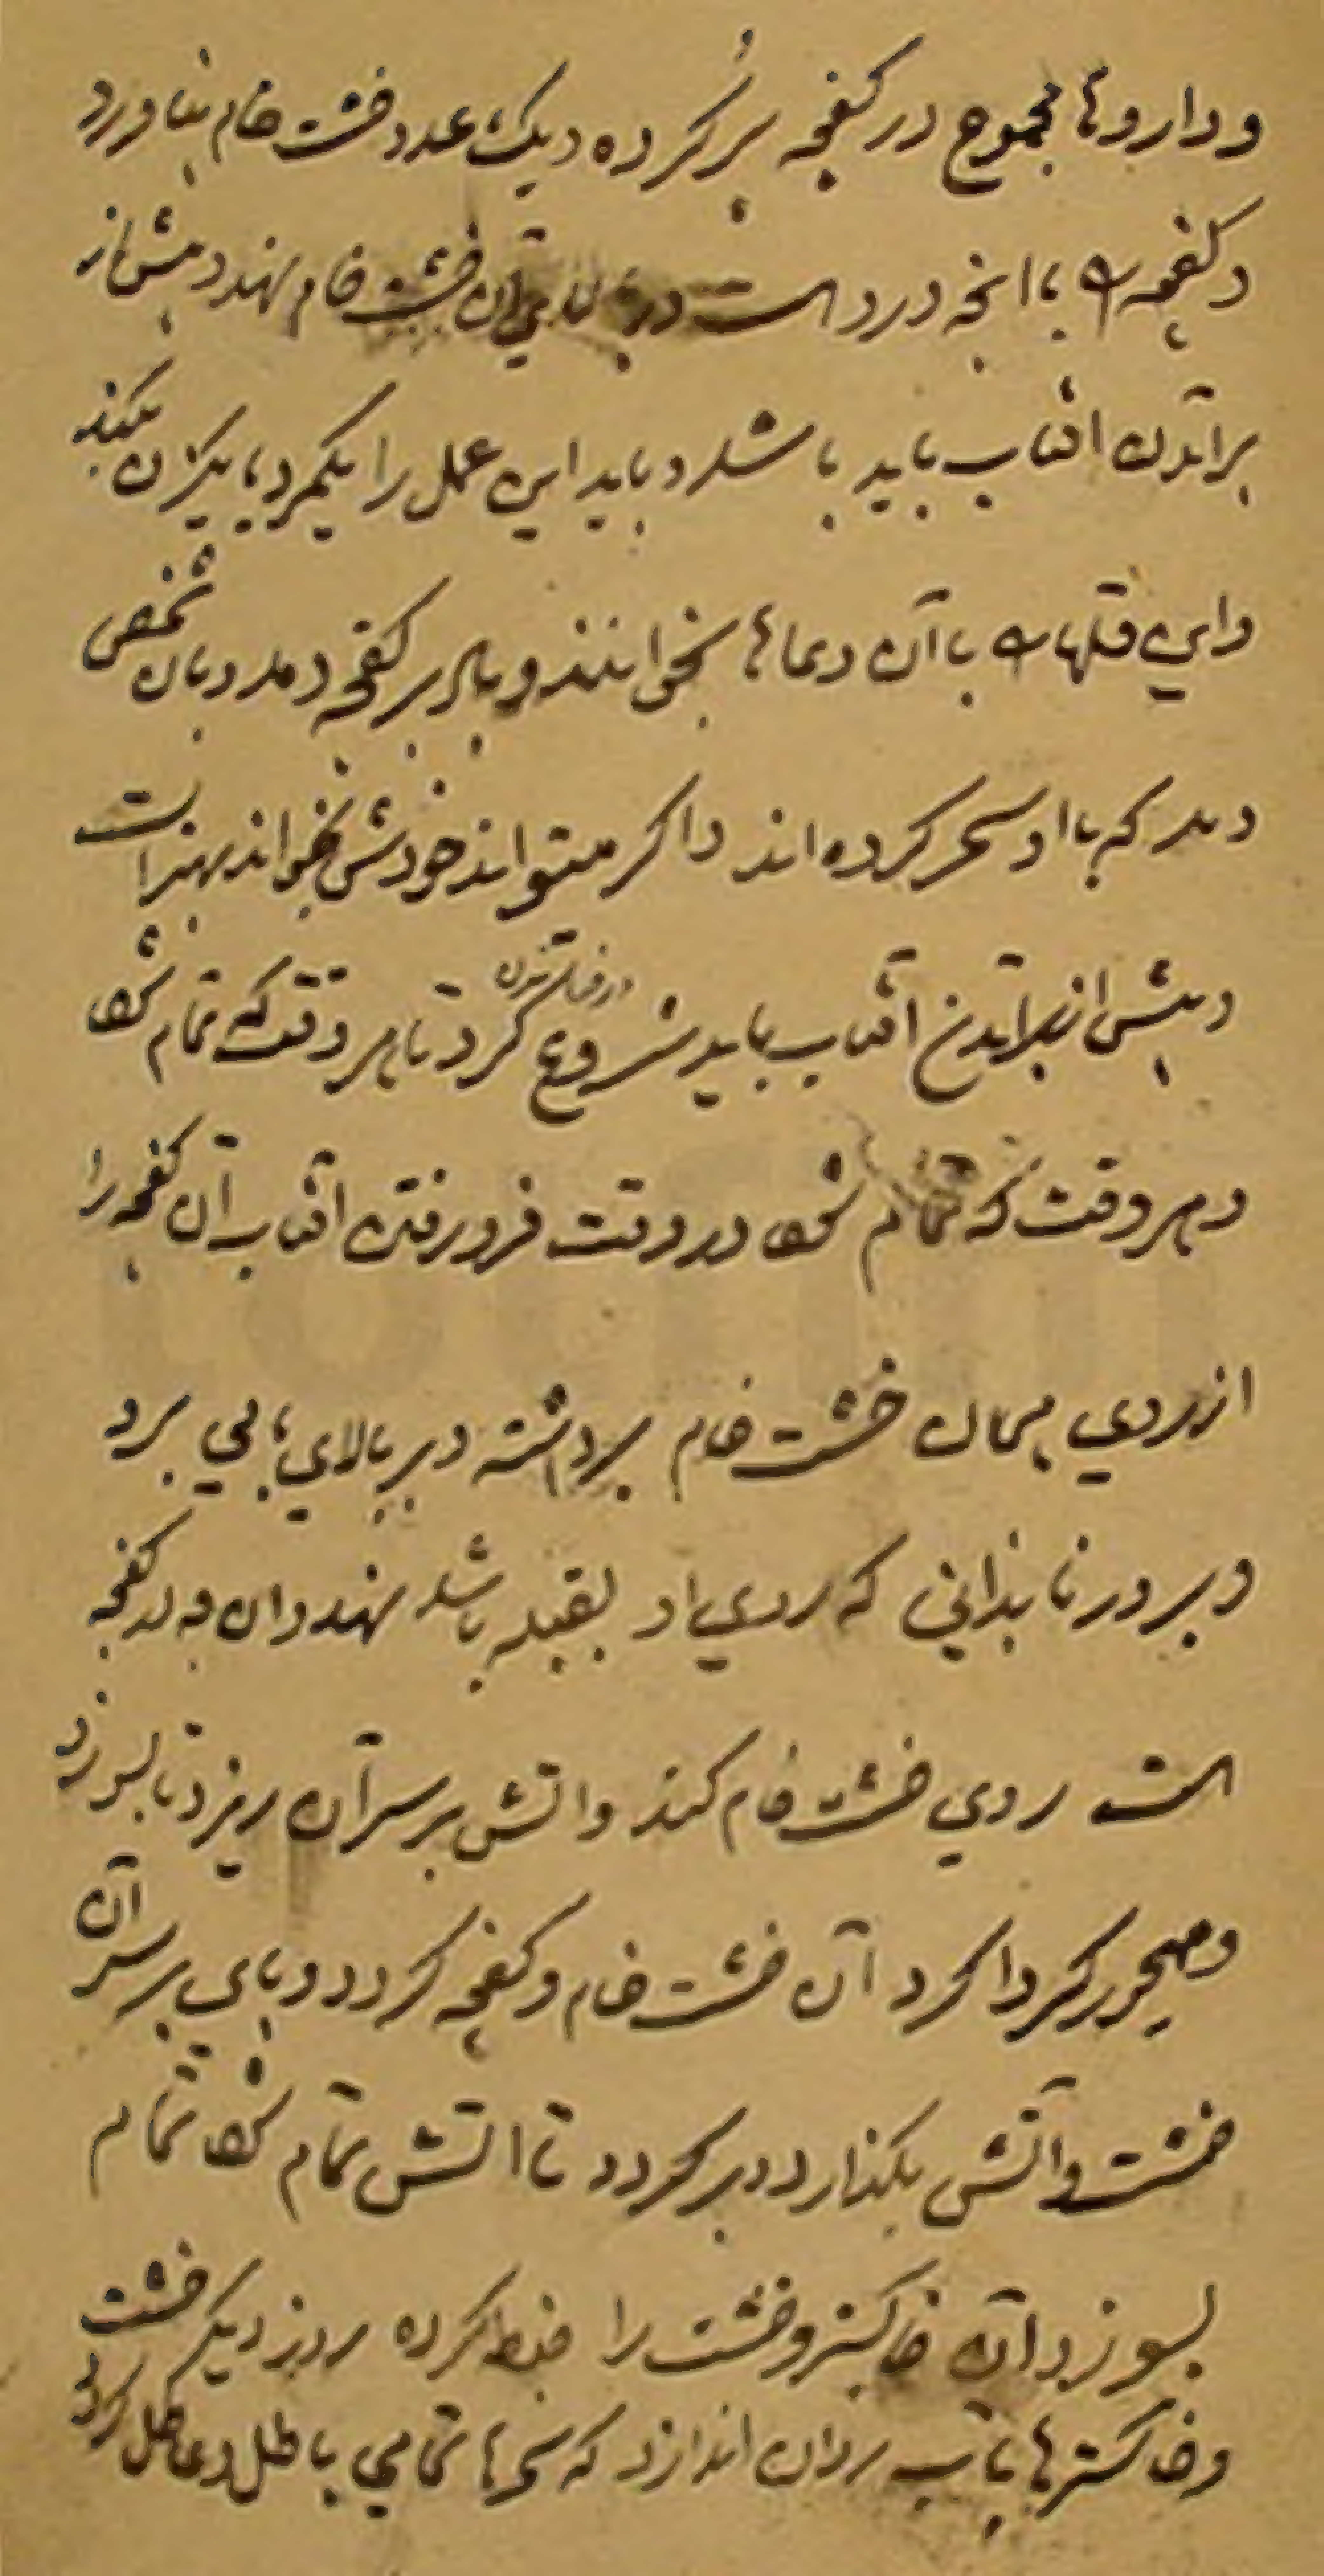 و داروها مجموع در کفچه پر کرده و یک عدد خشت خام بیاورد
و کفچه را با انچه درو است در بالای آن خشت خام نهد و پیش از
برآمدن افتاب باید باشد و باید این عمل را یکمرد یا یکزن بکند
و این قلها را با آن دعاها بخوانند و بر کفچه دمد و بآن شخص
دمد که با او سحر کرده اند و اگر میتواند خودش بخواند بهتر است
و پیش از برآمدن آفتاب باید شروع کرد تا هر وقت که تمام شود
و هر وقت که تمام شود در وقت فرو رفتن افتاب آن کفچه را
از روی همان خشت خام برداشته در بالای بامی برد
و برو رناندانی که روی او بقبله باشد نهد و آن در کفچه
است روی خشت خام کند و اتش بر سر آن ریزد تا بسوزد
و کرداکرد آن خشت خام و کفچه کردد و پای بر سر آن
خشت و آتش بکذارد و بر کردد تا اتش تمام شود تمام
بسوزد آن خاکستر و خشت را ضبط کرده روز دیکر خشت
و خاکسترها بآب روان اندازد که سحرها تمامی باطل و عاطل کردد